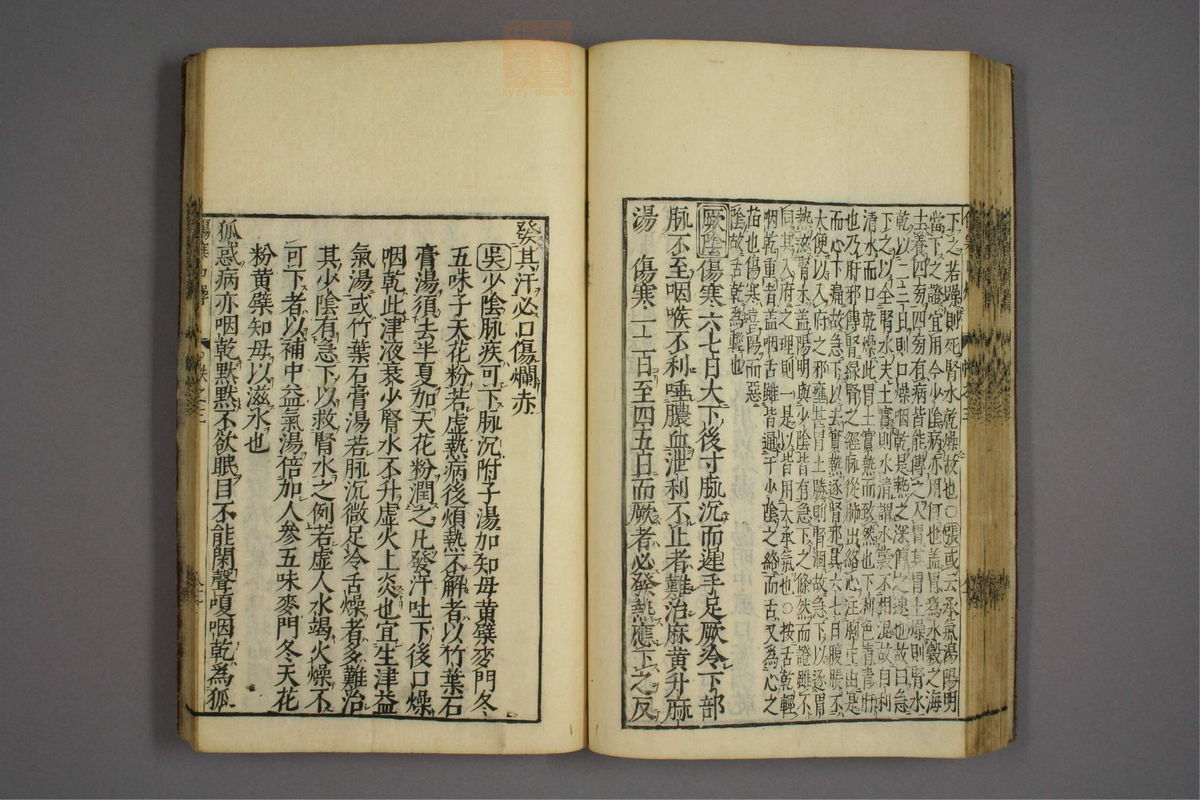 下之若躁則死腎水乾燥故也○張或云承氣湯陽明
當下之證宜用今少陰病亦用何也盖胃爲水穀之海
主養四旁四旁有病皆能傳之入胃其胃土燥則腎水
乾以二三日則口燥咽乾是熱之深傳之速也故曰急
下之以全腎水夫土實則水清謂水穀不相混故自利
清水而口乾燥此胃土實熱而致然也下利色青青肝
也乃肝邪傳腎緣腎之經脉從肺出絡心注胸中由是
而心下痛故急下以去實熱逐腎邪其六七日腹脹不
大便以入府之邪壅甚胃土勝則腎涸故急下以逐胃
熱滋腎水盖陽明與少陰皆有急下之條然而證雖不
同其入府之理則一是以皆用大承氣也○按舌乾輕
咽乾重者盖咽舌雖皆通于少陰之絡而舌又為心之
苗也傷寒喜陽而惡
陰故舌乾爲輕也
厥陰傷寒六七日大下後寸脉沉而遲手足厥冷下部
脉不至咽喉不利唾膿血泄利不止者難治麻黄升麻
湯 傷寒一二日至四五日而厥者必發熱應下之反
發其汗必口傷爛赤
吳少陰脉疾可下脉沉附子湯加知母黄蘗麥門冬
五味子天花粉若虛熱病後煩熱不解者以竹葉石
膏湯須去半夏加天花粉潤之凡發汗吐下後口燥
咽乾此津液衰少腎水不升虛火上炎也宜生津益
氣湯或竹葉石膏湯若脉沉微足冷舌燥者多難治
其少陰有急下以救腎水之例若虛人水竭火燥不
可下者以補中益氣湯倍加人參五味麥門冬天花
粉黄蘗知母以滋水也
狐惑病亦咽乾默默不欲眠目不能閉聲嗄咽乾爲狐